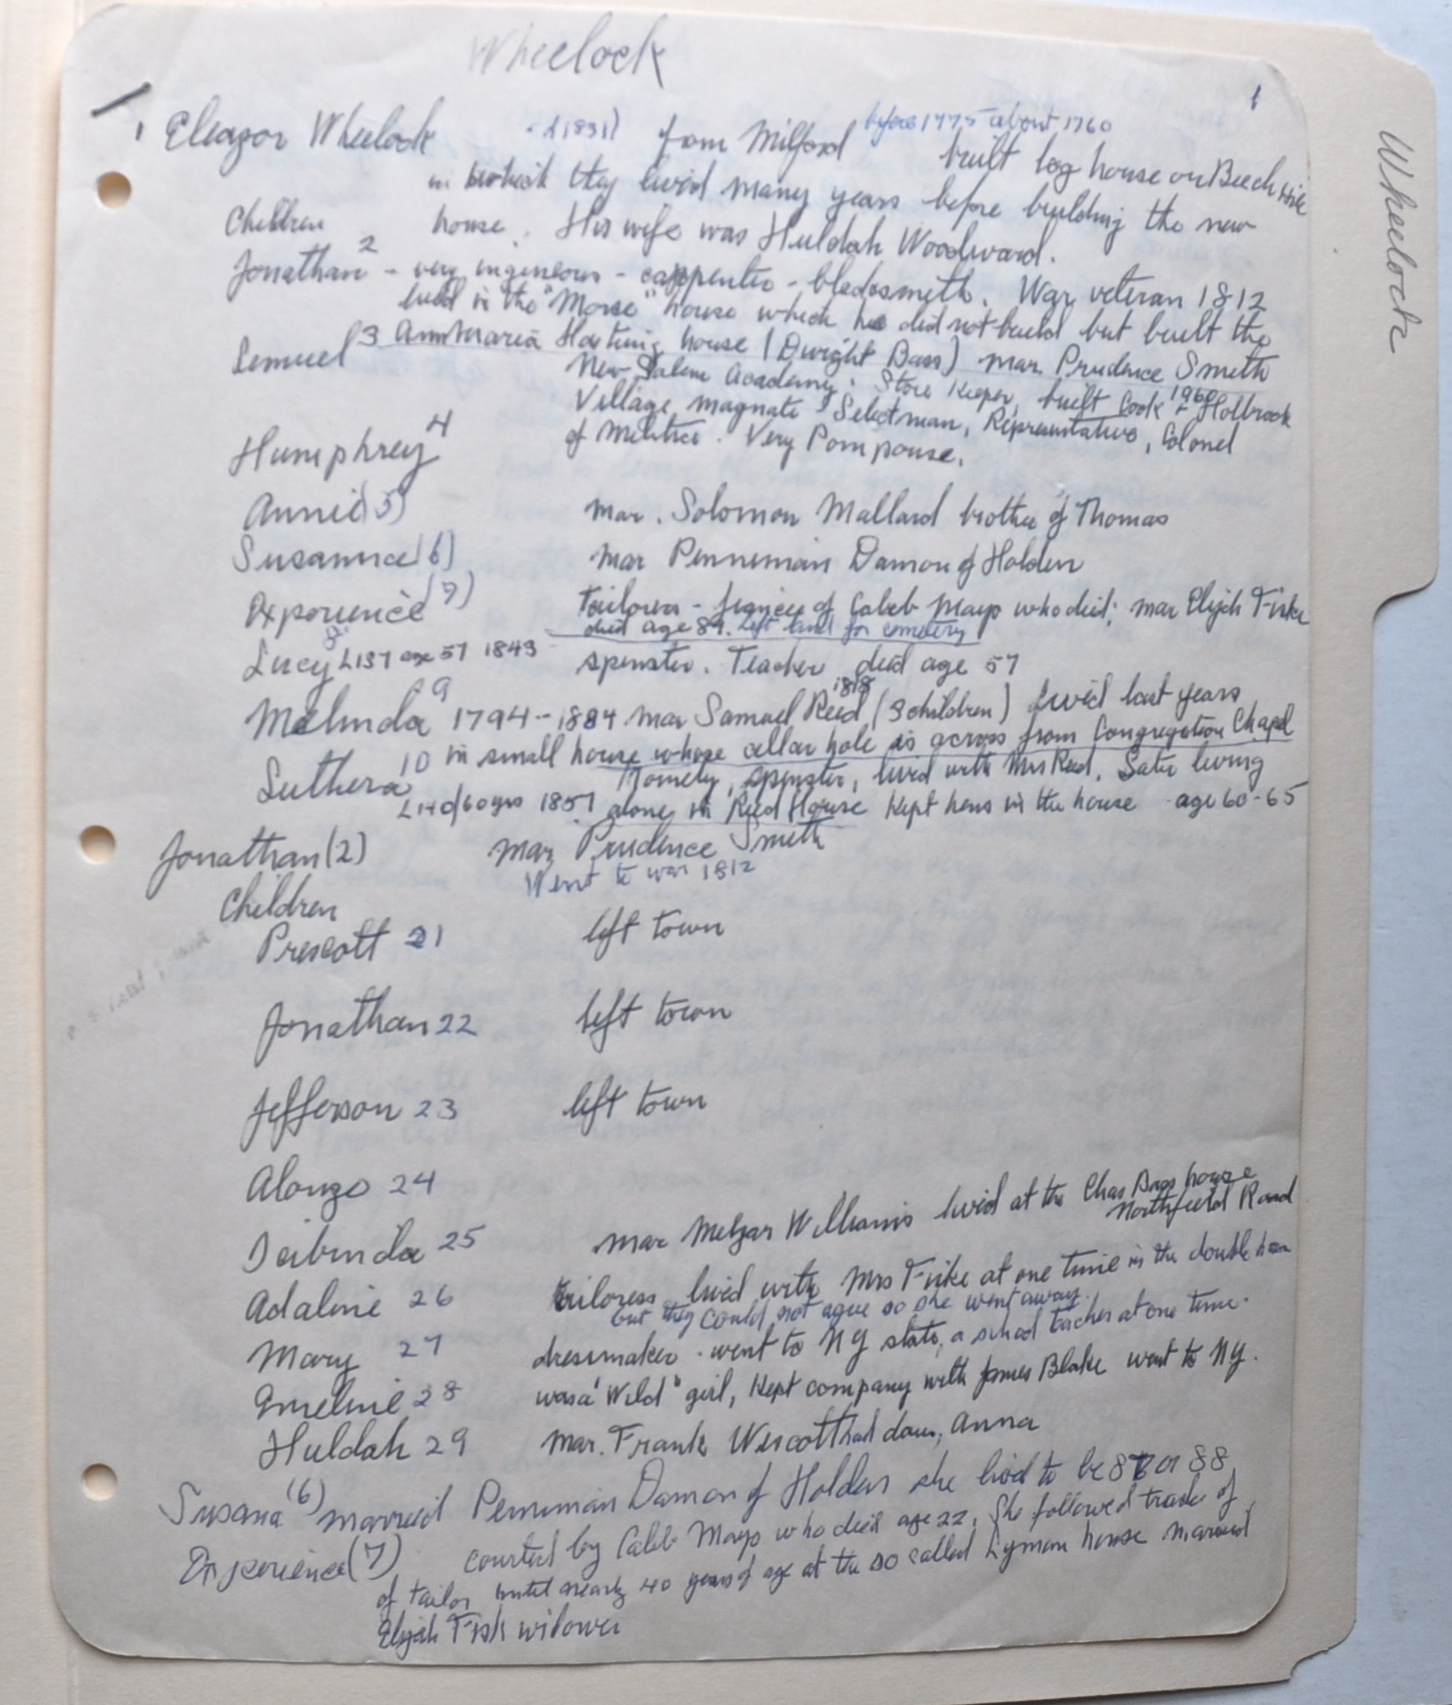 Wheelock
1
Wheelock
1 Eleazor Wheelock d (1831) from Milford before 1775 - about 1760 built log house on Beech Hill
in which they lived many years before building the new
Children house. His wife was Huldah Woodward.
Jonathan 2 - very ingenious - carpenter - blacksmith. War veteran 1812
lived in the "Morse" house which he did not build but built the
Semuel 3 Ann Maria house (Dwight Bass) mar. Prudence Smith
New Salem Academy. Store Keeper, built Cook & Holbrook 1960
Village magnate Selectman, Representative, Colonel
Humphrey 4 of Militia. Very Pompouse.
Annie (5) mar. Solomon Mallard brother of Thomas
Susanna (6) mar Penneman Damon of Holden
Experience (7) Tailoress - fiancee of Caleb Mayo who died; mar Elijah Fiske
died age 89. left land for cemetery
Lucy 8 L137 age 57 1843 spinster. Teacher died age 57
Melinda 9 1794-1884 mar Samuel Reed 1818 (3 children) lived last years
in small house whose cellar hole is across from Congregation Chapel
Luthera 10 Homely, spinster, lived with Mrs Reed. Later living
60 yrs 1857 alone in Reed House Kept hens in the house age 60-65
Jonathan (2) mar Prudence Smith
Went to war 1812
Children
Prescott 21 left town
Jonathan 22 left town
Jefferson 23 left town
Alonzo 24
25 mar Williams lived at the Chas Bass house
Northfield Road
Adaline 26 tailoress lived with Mrs Fiske at one time in the double
but they could not agree so she went away.
Mary 27 dressmaker - went to NY state, a school teacher at one time.
Emeline 28 was a "Wild" girl, Kept company with James Blake went to NY.
Huldah 29 mar. Frank Wescott had dau, Anna
Susana (6) married Penneman Damon of Holden she lived to be 87 or 88
Experience (7) courted by Caleb Mayo who died age 22. She followed trade of
of tailor until nearly 40 years of age at the so called Lyman house married
Elijah Fisk widower